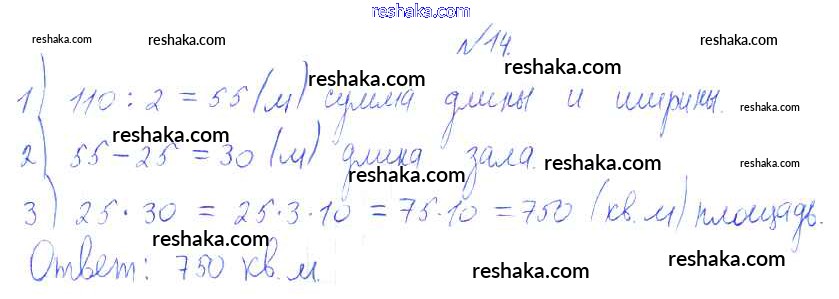 reshaka.com
reshaka.com reshaka.com №14. reshaka.com
reshaka.com
1) 110 : 2 = 55 (м) сумма длины и ширины.
reshaka.com reshaka.com reshaka.com
2) 55 - 25 = 30 (м) длина зала.
reshaka.com reshaka.com
3) 25 · 30 = 25 · 3 · 10 = 75 · 10 = 750 (кв. м) площадь.
reshaka.com reshaka.com reshaka.com
Ответ: 750 кв. м.
reshaka.com